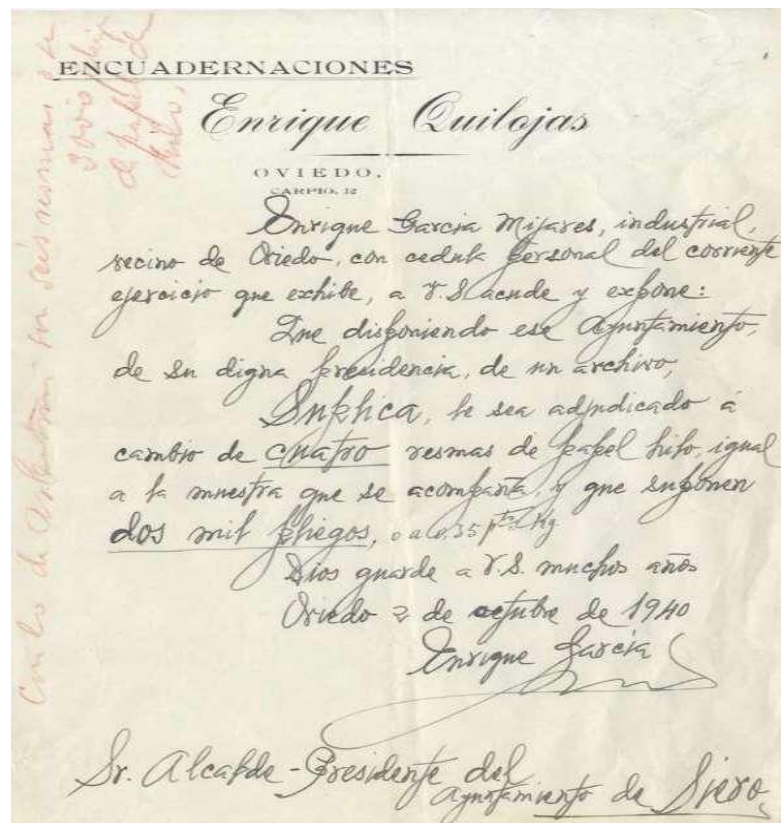 ENCUADERNACIONES
Enrique Quilojas
OVIEDO.
CARPIO, 12
Enrique Garcia Mijares, industrial,
vecino de Oviedo, con cedula personal del corriente
ejercicio que exhibe, a V.S acude y expone:
Que disponiendo ese Ayuntamiento,
de su digna presidencia, de un archivo,
Suplica, le sea adjudicado á
cambio de cuatro resmas de papel hilo, igual
a la muestra que se acompaña, y que suponen
dos mil pliegos, o a 0.35 ptas Kg
Dios guarde a V.S. muchos años
Oviedo 2 de octubre de 1940
Enrique Garcia
Sr. Alcalde-Presidente del
Ayuntamiento de Siero,
seis resmas o sean
3000
de papel de
hilo,